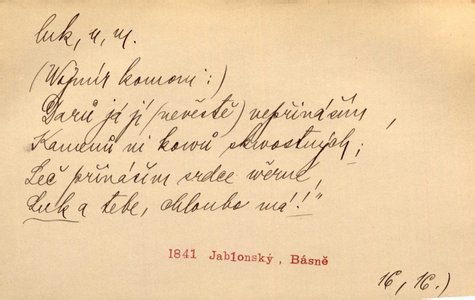 luk, u, m.
(Wojmír komoni:)
Darů já jí (nevěstě) nepřináším,
Kamenů ni kowů skwostných;
Leč přináším srdce wěrné,
Luk a tebe, chloubo má!!"
1841 Jablonský, Básně
16, 16.)